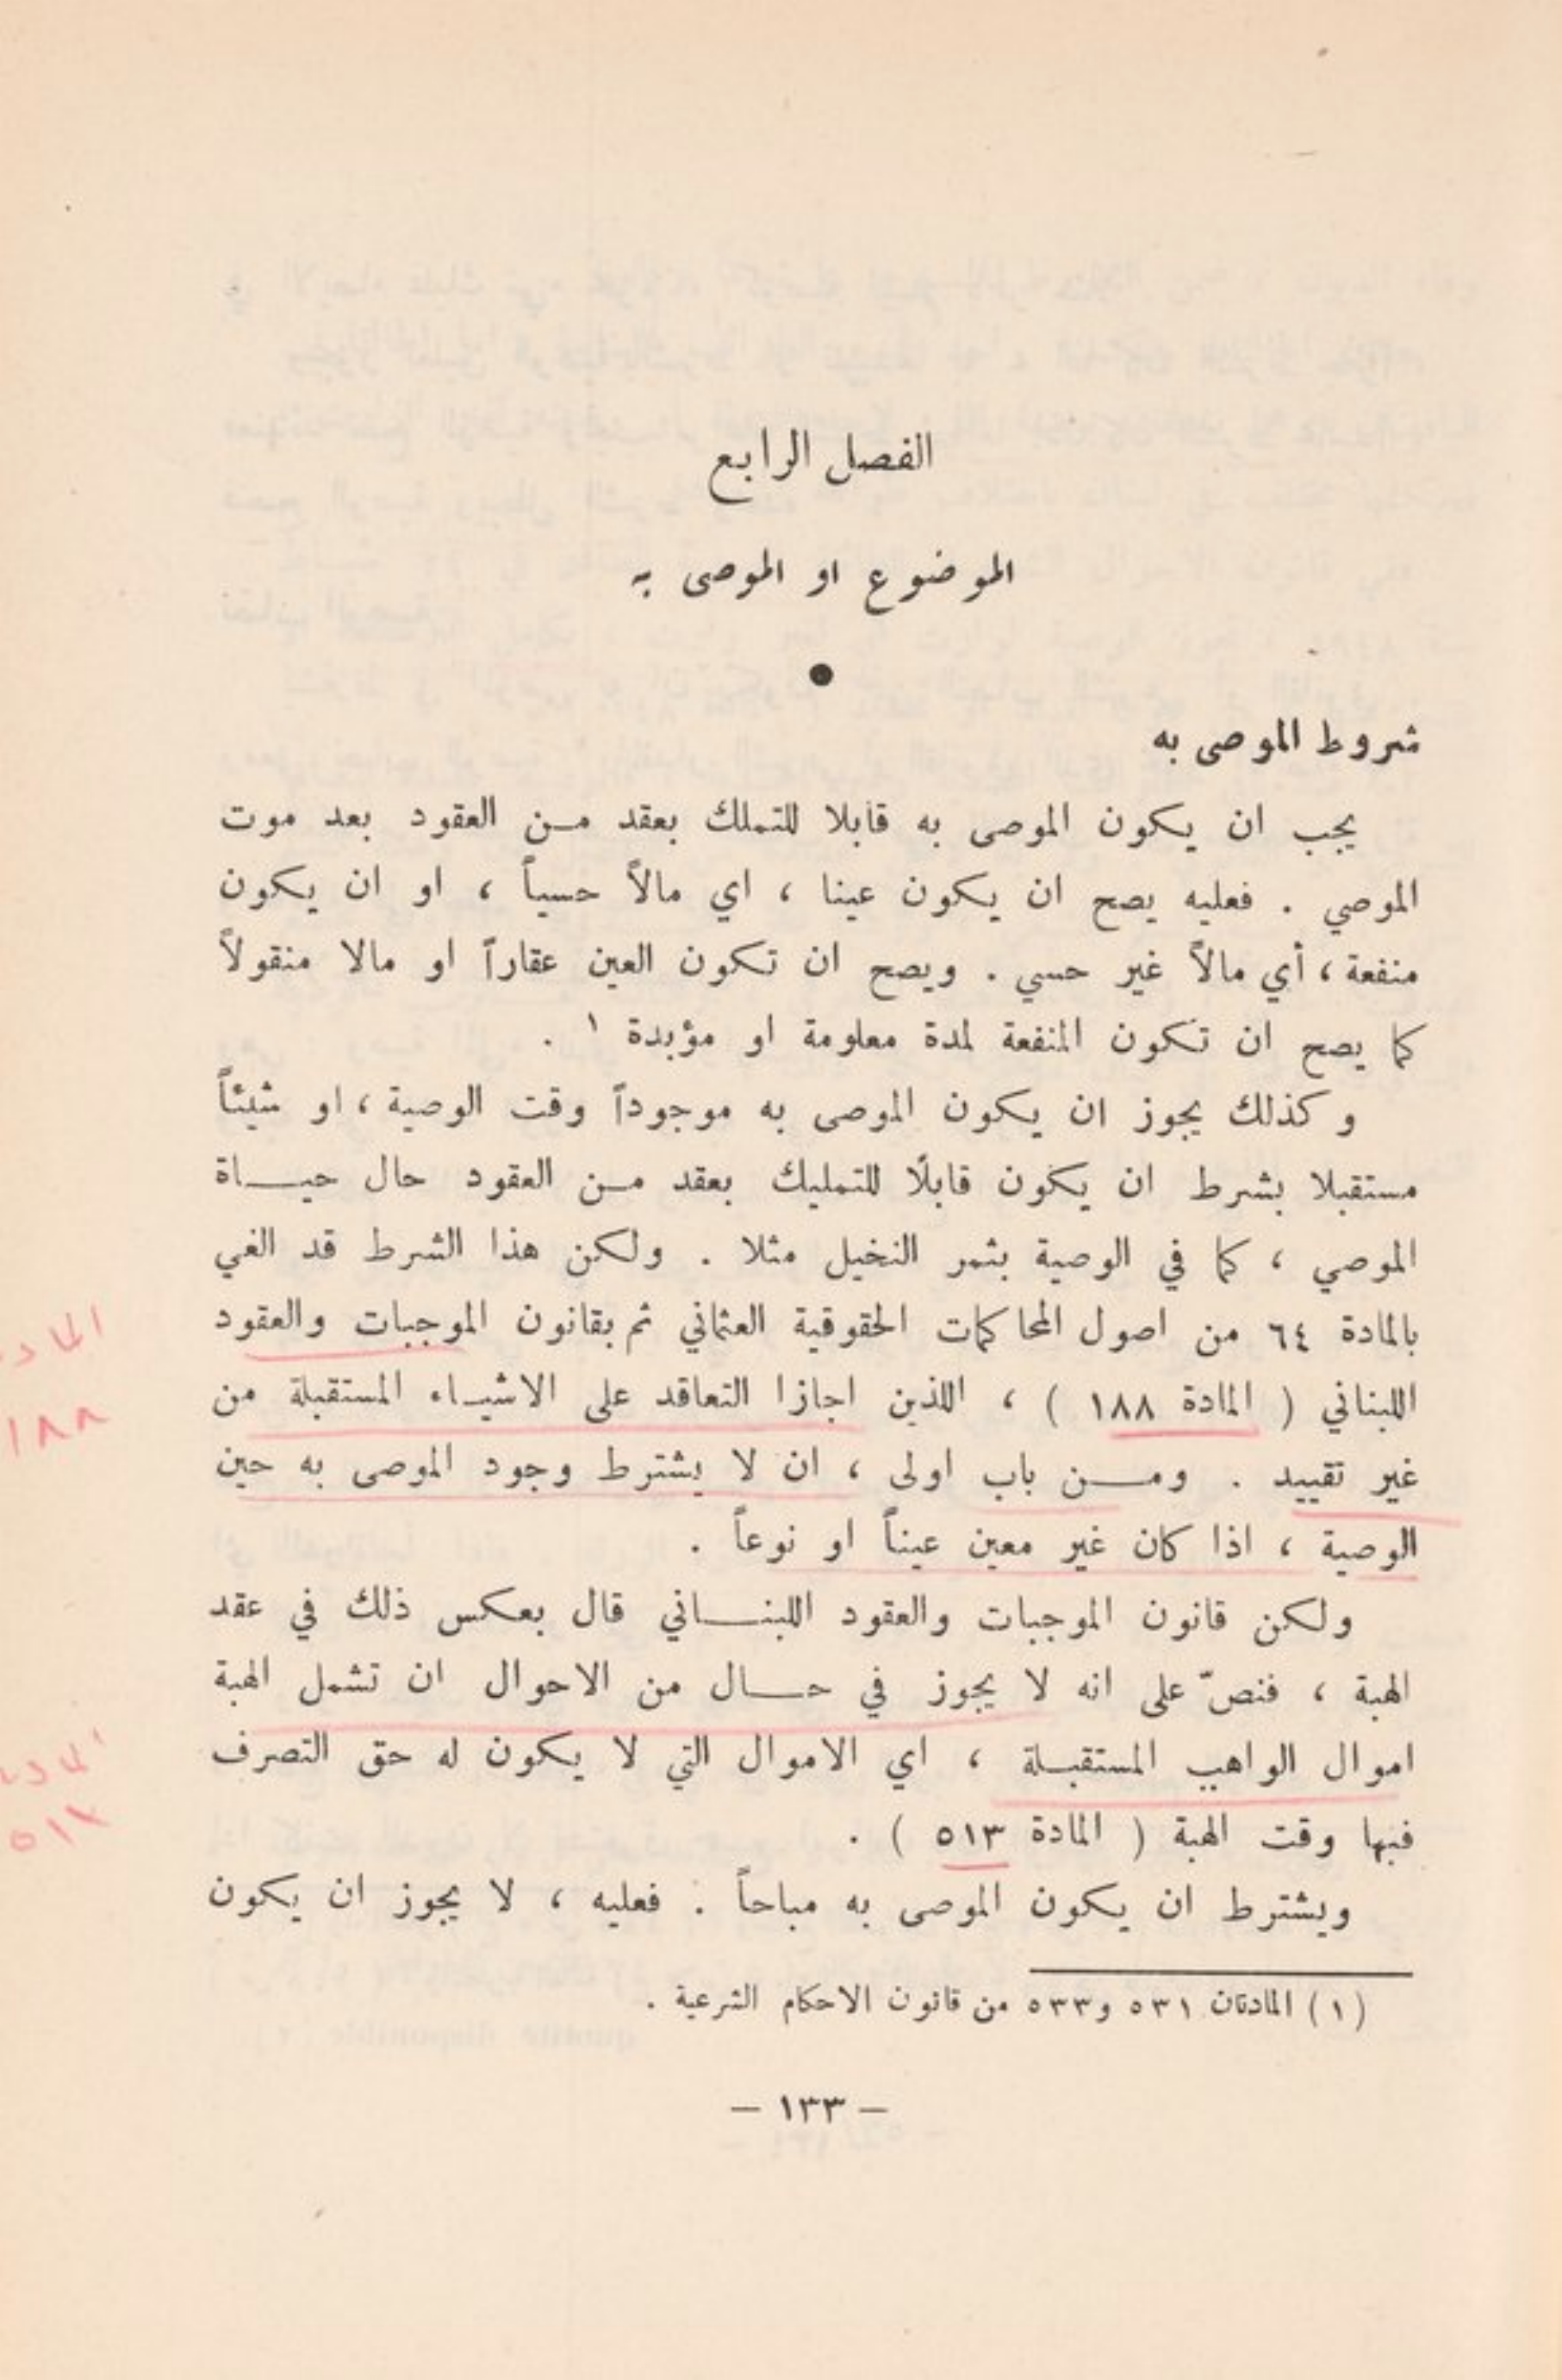 الفصل الرابع
الموضوع او الموصى به
شروط الموصى به
يجب ان يكون الموصى به قابلا للتملك بعقد من العقود بعد موت
الموصي . فعليه يصح ان يكون عينا ، اي مالاً حسياً ، او ان يكون
منفعة ، أي مالاً غير حسي . ويصح ان تكون العين عقاراً او مالا منقولاً
كما يصح ان تكون المنفعة لمدة معلومة او مؤبدة ١ .
وكذلك يجوز ان يكون الموصى به موجوداً وقت الوصية ، او شيئاً
مستقبلا بشرط ان يكون قابلًا للتمليك بعقد من العقود حال حيــاة
الموصي ، كما في الوصية بثمر النخيل مثلا . ولكن هذا الشرط قد الغي
بالمادة ٦٤ من اصول المحاكمات الحقوقية العثماني ثم بقانون الموجبات والعقود
المادة
اللبناني ( المادة ١٨٨ ) ، اللذين اجازا التعاقد على الاشيـاء المستقبلة من
١٨٨
غير تقييد . ومــن باب اولى ، ان لا يشترط وجود الموصى به حين
الوصية ، اذا كان غير معين عيناً او نوعاً .
ولكن قانون الموجبات والعقود اللبنــاني قال بعكس ذلك في عقد
الهبة ، فنصّ على انه لا يجوز في حــال من الاحوال ان تشمل الهبة
اموال الواهب المستقبـلة ، اي الاموال التي لا يكون له حق التصرف
المادة
فيها وقت الهبة ( المادة ٥١٣ ) .
٥١٣
ويشترط ان يكون الموصى به مباحاً . فعليه ، لا يجوز ان يكون
(١) المادتان ٥٣١ و٥٣٣ من قانون الاحكام الشرعية .
– ١٣٣ –